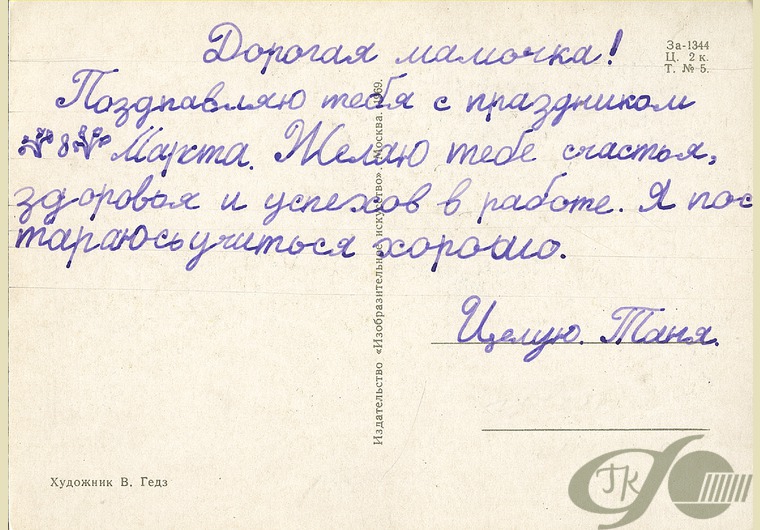 Дорогая мамочка!
За-1344
Ц. 2 к.
Т. № 5.
Поздравляю тебя с праздником
8 Марта. Желаю тебе счастья,
здоровья и успехов в работе. Я пос
тараюсь учиться хорошо.
Целую. Таня.
Издательство «Изобразительное искусство». Москва. 1969.
Художник В. Гедз
ГК